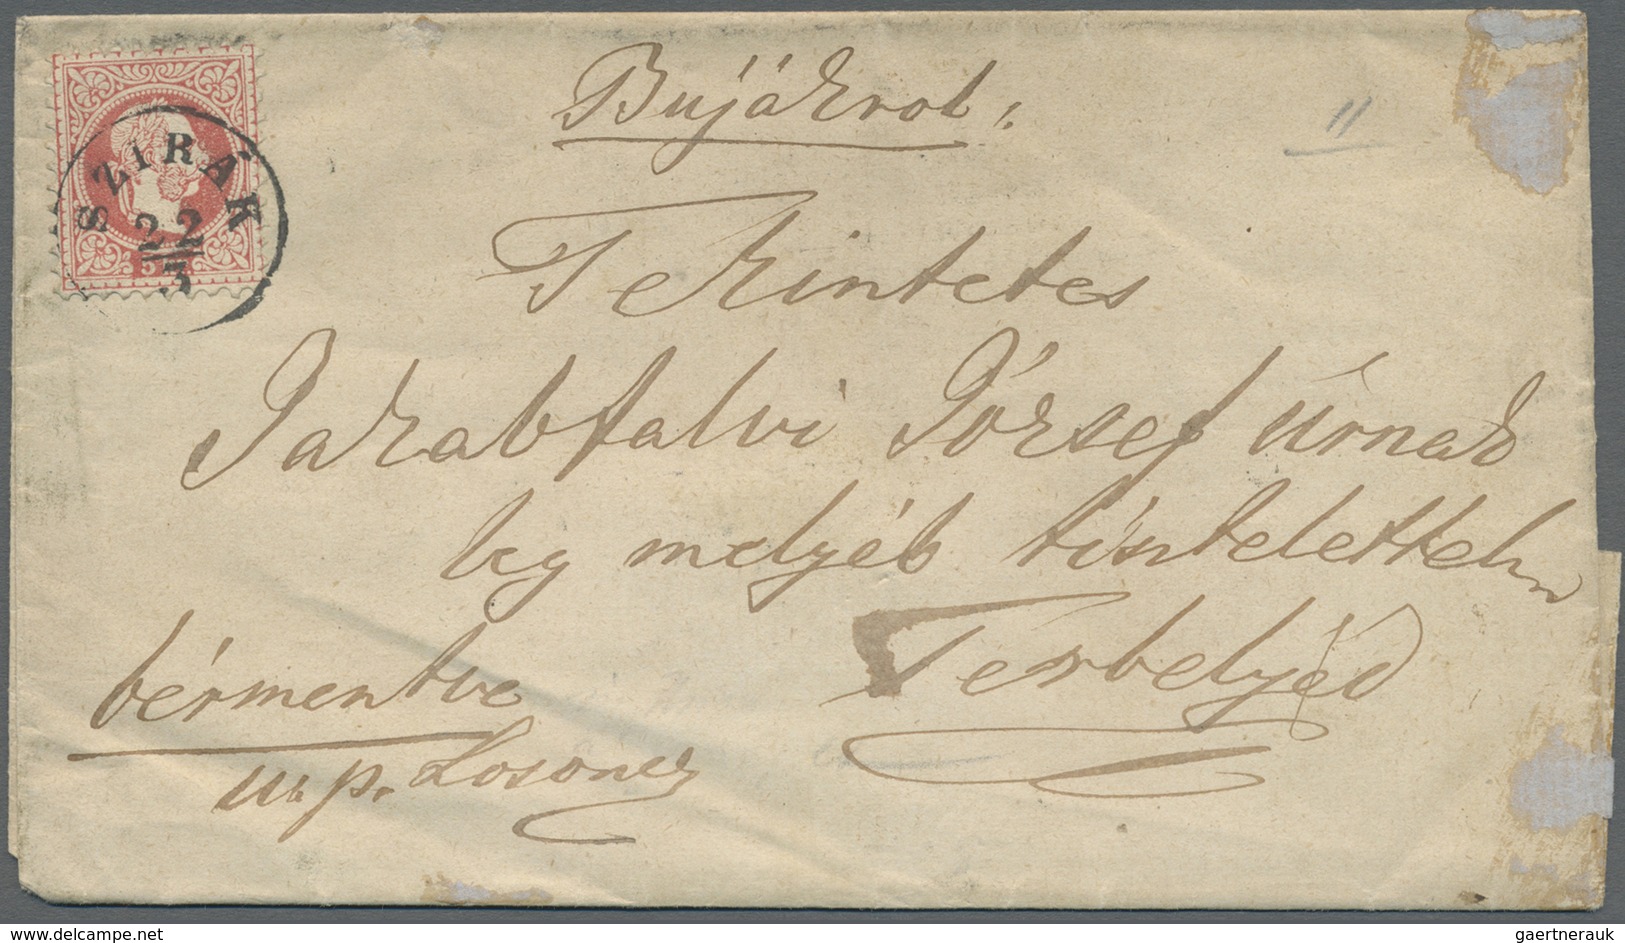 Bujákrol
SZIRÁK
22
3
5
11
Tekintetes
Jakabfalvi József úrnak
leg mélyéb tisztelettel
Terbelyéd
bérmentve
u. p. Losoncz
www.delcampe.net
gaertnerauk